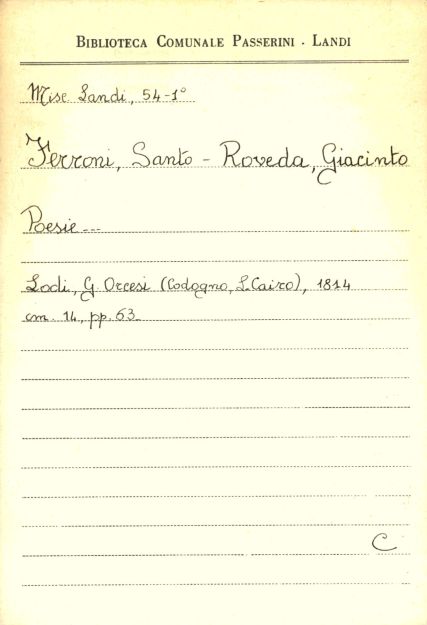 BIBLIOTECA COMUNALE PASSERINI - LANDI
Misc Landi, 54-1°
Ferroni, Santo - Roveda, Giacinto
Poesie ---
Lodi, G. Orcesi (Codogno, L. Cairo), 1814
cm. 14, pp. 63
C